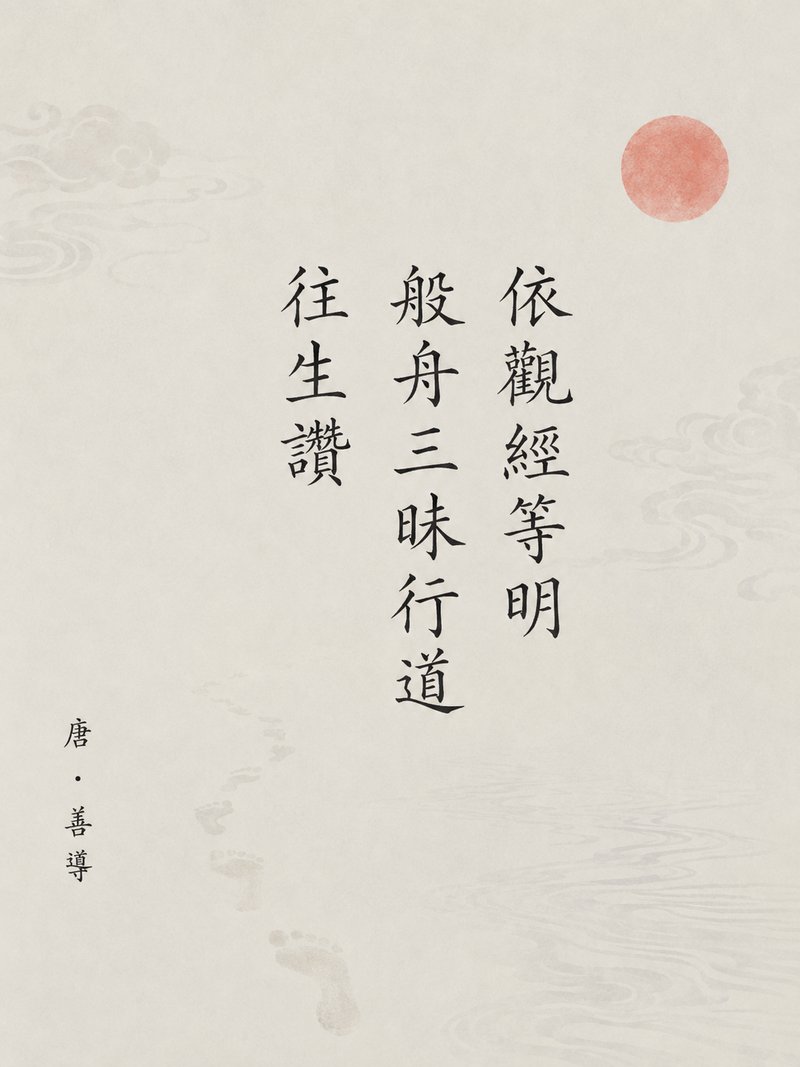 依觀經等明
般舟三昧行道
往生讚
唐·善導